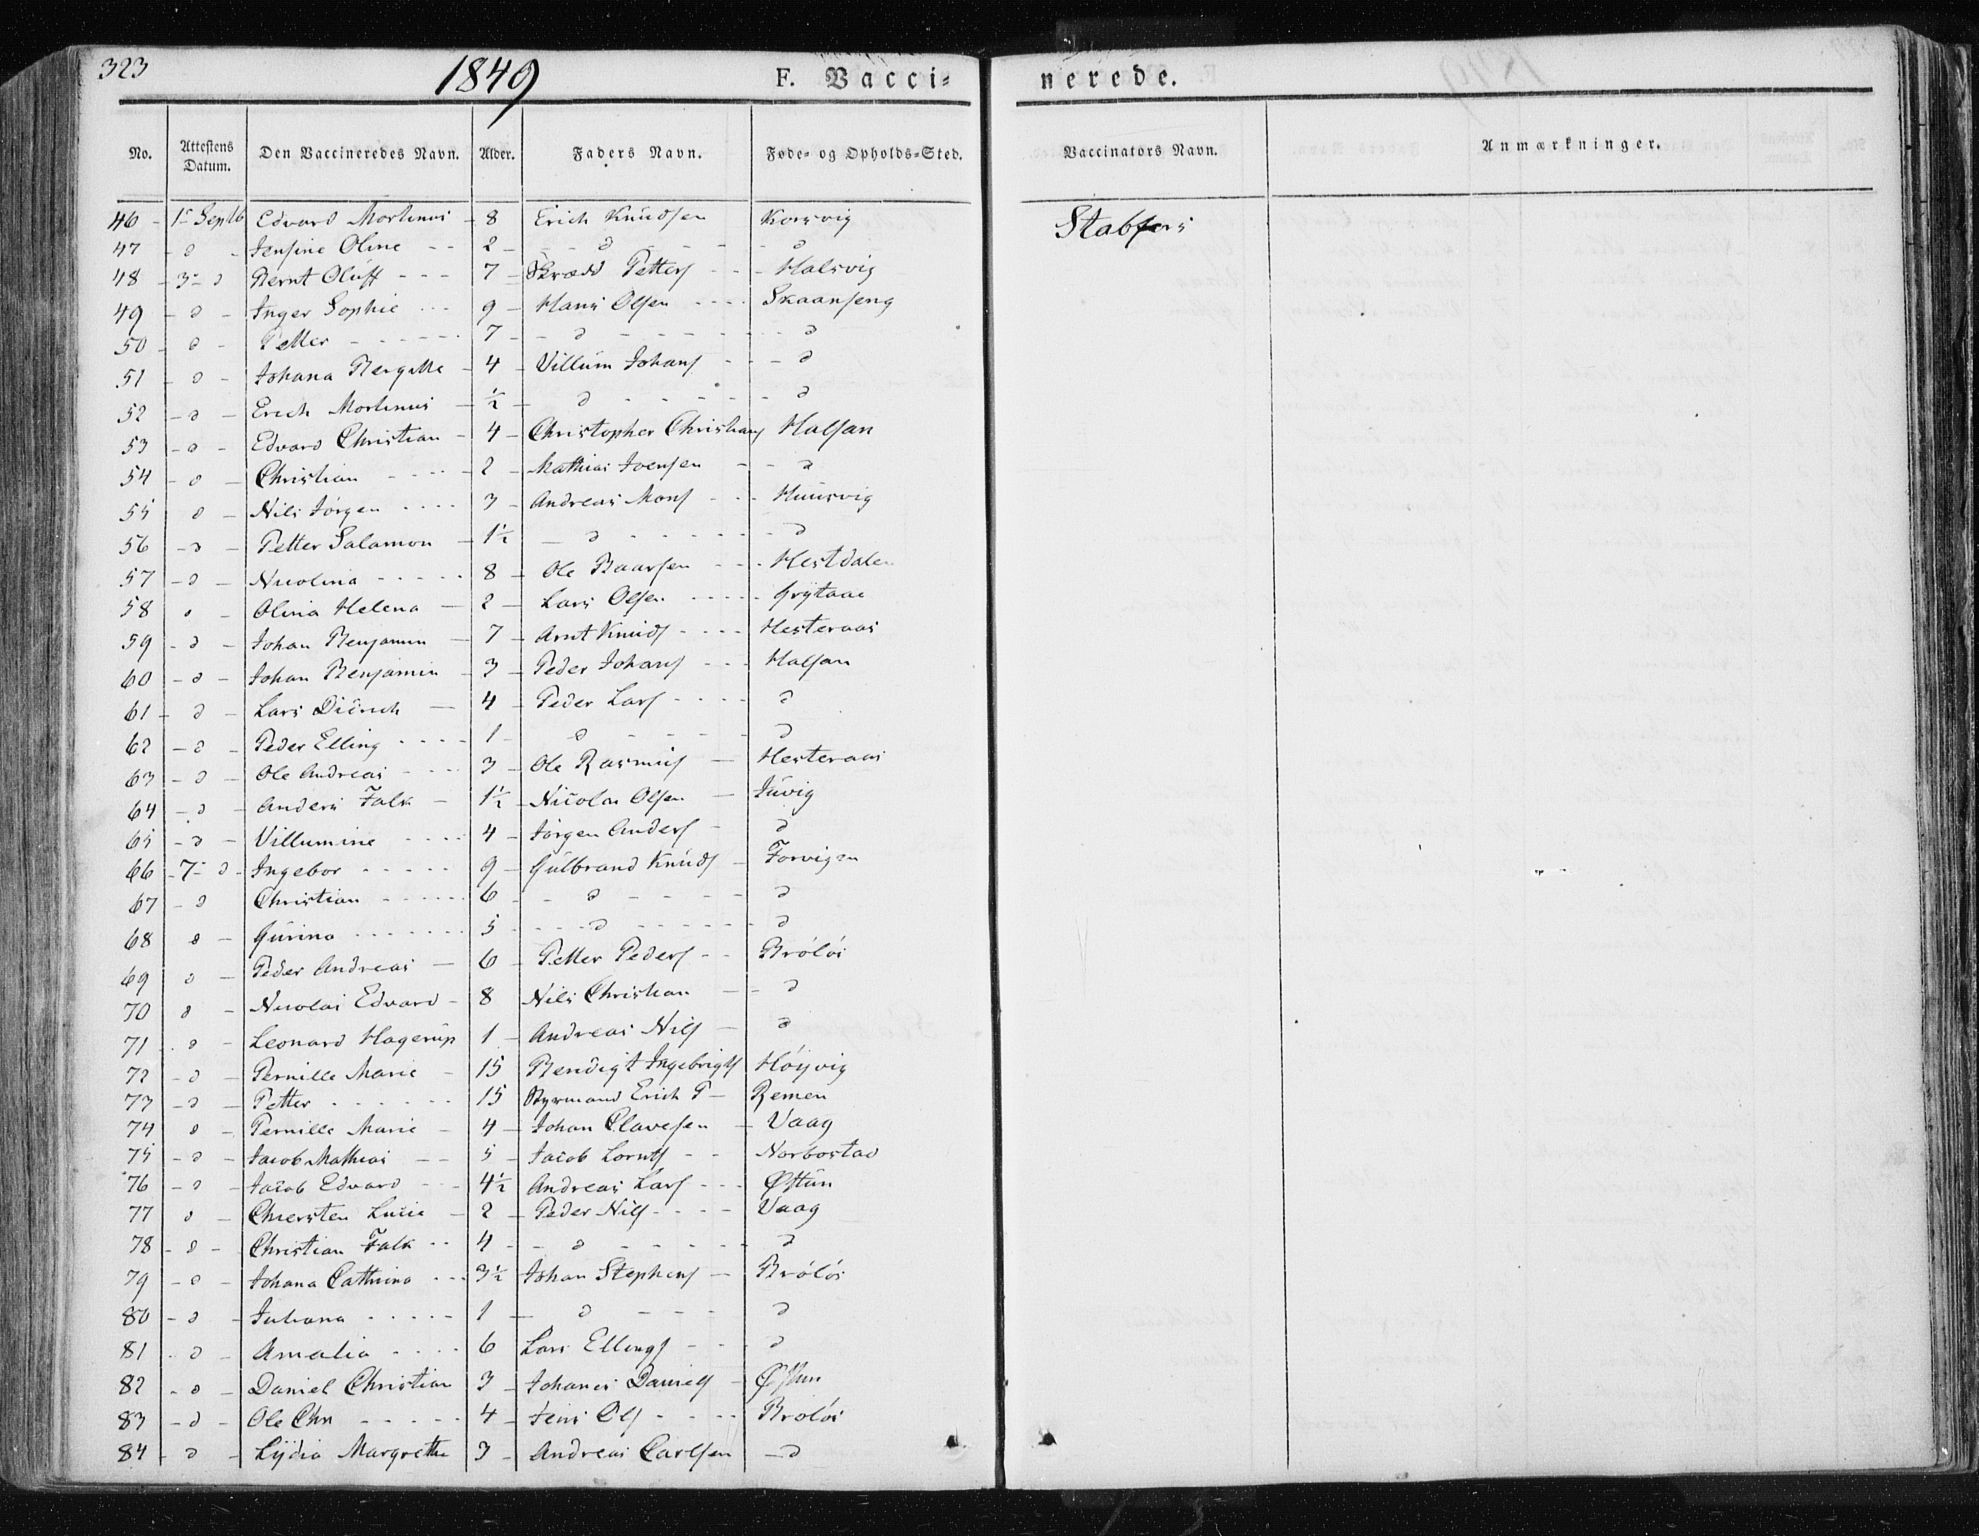 323
1849
F. Vacci=
nerede.
No. Attestens Datum. Den Vaccineredes Navn. Alder. Faders Navn. Føde- og Opholds=Sted. Vaccinators Navn. Anmærkninger.
46 - 1- Septb Edvard Martinus - 8 Erich Knudsen Korsvig
47 " d - Jensine Oline - - 2 - - d - - - - d
48 - 3- d Bernt Oluff - - - 7 - Petters - - - Halsvig
49 - d - Inger Sophie - - - 9 - Hans Olsen - - - - Skaanseng
50 - d - Petter - - - - - - 7 - - d - - - - - - d
51 - d - Johana Bergitte - 4 - Villum Johans - - - d
52 - d - Erich Martinus - ½ - d - - - - - d
53 - d - Edvard Christian - 4 - Christopher Christians Halsan
54 - d - Christian - - - - 2 - Mathias Joensen - - d
55 d - Nils Jørgen - - - - 3 - Andreas Mons - - - Huusvig
56 - d - Petter Salamon - 1½ - d - - - - - d
57 - d - Nicolina - - - - - 8 - Ole Baarsen - - - - Hestdalen
58 d - Olina Helena - 2 - Lars Olsen - - - - - Grytaae
59 - d - Johan Benjamin - 7 - Arnt Knuds - - - - Hesteraas
60 - d - Johan Benjamin - 3 - Peder Johans - - - Halsan
61 - d - Lars Didrich - 4 - Peder Lars - - - - d
62 - d - Peder Elling - - - - 1 - d - - - - d
63 - d - Ole Andreas - - - 3 - Ole Rasmus - Hesteraas
64 - d - Anders Falk - 1½ - Nicolai Olsen - Juvig
65 - d - Villumine - - - - 4 - Jørgen Anders - d
66 - 7- d - Ingebor - - - - - 9 - Gulbrand Knuds - Forvigen
67 - d Christian - - - - - - 6 - - d - - - - - d
68 d - Gurina - - - - - - - 5 - - - - d - - - - - - d
69 d - Peder Andreas - 6 - Petter Peders - - Bröløs
70 d - Nicolai Edvard - 8 Nils Christian - - d
71 - d - Leonard Hagerup 1 - Andreas Nils - d
72 - d - Pernille Marie - 15 Bendigt Ingebrigts Høyvig
73 - d - Petter - - - - - - 15 Erich P - Remen
74 d - Pernille Marie - 4 - Johan Clavesen - Vaag
75 - d - Jacob Mathias - - 5 - Jacob Lornts - - Norbostad
76 - d - Jacob Edvard - - 4½ Andreas Lars - - - Østun
77 d - Chiersten Lucie - 2 - Peder Nils - - - - Vaag
78 - d - Christian Falk - - 4 - - d - - - - - d
79 - d - Johana Cathrina - - - 3½ Johan Stephens - Bröløs
80 - d - Juliana - - - - - 1 - d - - - d
81 - d - Amalia - - - - 6 Lars Ellings - - - d
82 - d - Daniel Christian 3 - Johanes Daniels - Østun
83 - d - Ole Chr - - - - - 4 - Jens Ols - - - - Bröløs
84 - d - Lydia Margrethe 3 - Andreas Carlsen - d